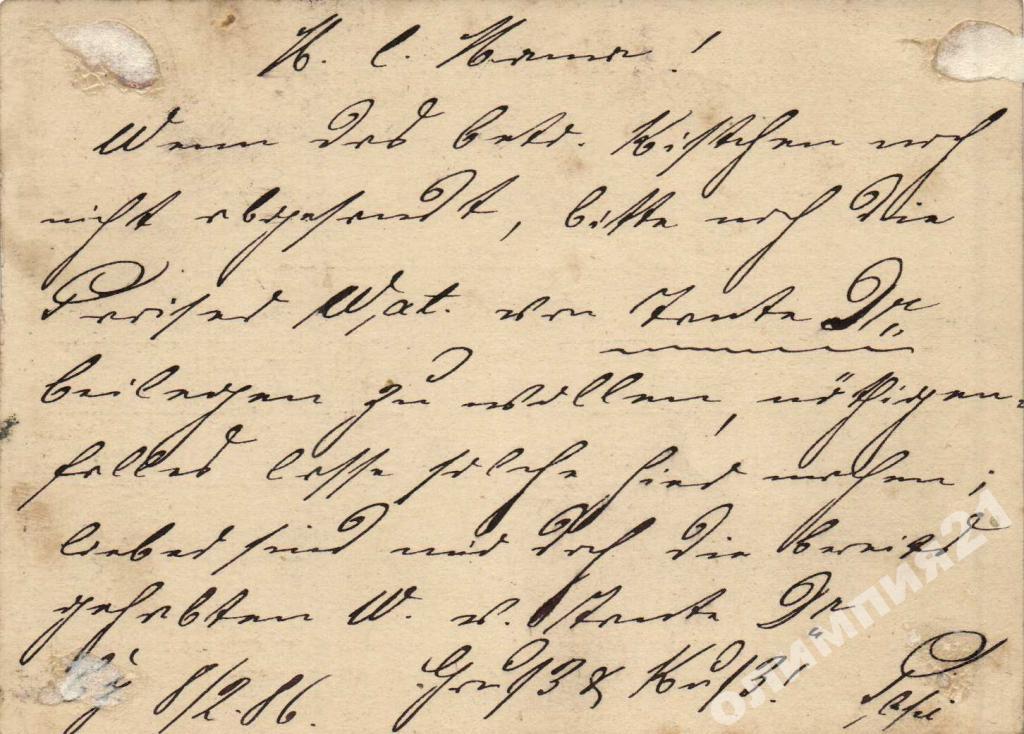 M. l. Mama!
Wenn das betr. Kistchen noch
nicht abgesandt, bitte noch die
Wat. von Tante Dr.
beilegen zu wollen, nöthigen-
falles lasse solche hier machen;
lieber sind mir doch die bereits
gehabten W. v. Tante Dr.
8/2.86. Gruß & Kuß!
ОЛИМПИЯ21